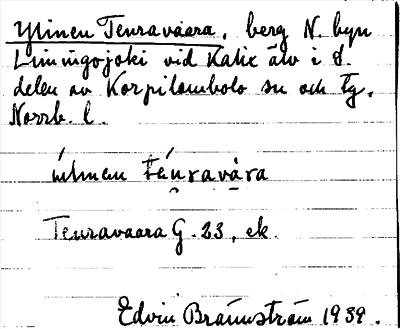 Ylinen Teuravaara, berg N. byn
Liningojoki vid Kalix älv i S.
delen av Korpilombolo sn och tg.
Norrb. l.
Teuravaara G. 23, ek.
Edvin Brännström 1939.